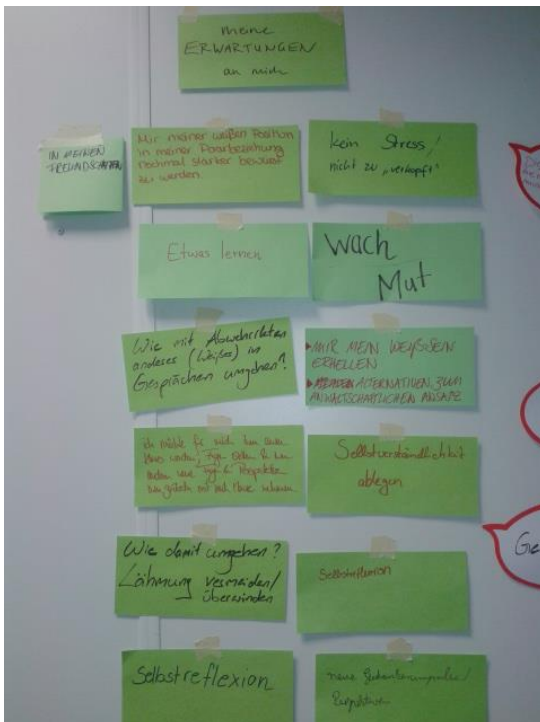 meine
ERWARTUNGEN
an mich
IN MEINEN
FREUNDSCHAFTEN
Mir meiner weißen Position
in meiner Paarbeziehung
nochmal stärker bewusst
zu werden
kein Stress!
nicht zu „verkopft"
Etwas lernen
Wach
Mut
Wie mit Abwehr
anderer (Weißer) in
Gesprächen umgehen?
MIR MEIN WEIßSEIN
ERHELLEN
ALTERNATIVEN ZUM
ANWALTSCHAFTLICHEN ANSATZ
ich möchte für mich
mit nach Hause nehmen
Selbstverständlichkeit
ablegen
Wie damit umgehen?
Lähmung vermeiden/
überwinden
Selbstreflexion
Selbstreflexion
neue Gedankenimpulse/
Perspektiven
Ge